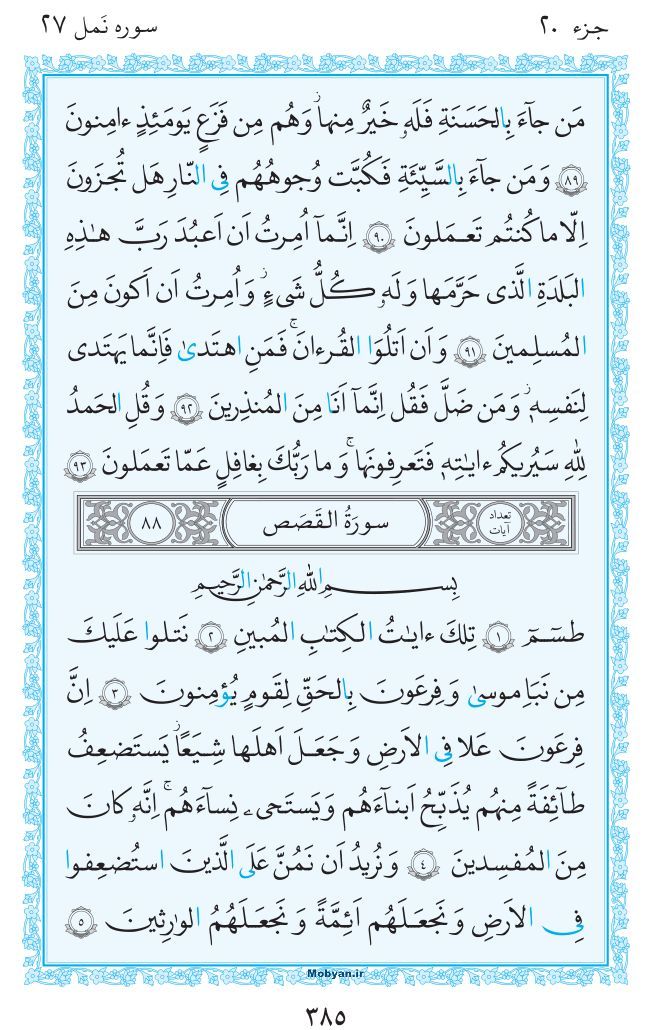 جزء ۲۰
سوره نَمل ۲۷
مَن جآءَ بِالحَسَنَةِ فَلَهٗ خَيرٌ مِنهاۖ وَهُم مِن فَزَعٍ يَومَئِذٍ ءامِنونَ
﴿٨٩﴾ وَمَن جآءَ بِالسَّيِّئَةِ فَكُبَّت وُجوهُهُم فِى النّارِ هَل تُجزَونَ
اِلّا ما كُنتُم تَعمَلونَ ﴿٩٠﴾ اِنَّمآ اُمِرتُ اَن اَعبُدَ رَبَّ هٰذِهِ
البَلدَةِ الَّذى حَرَّمَها وَلَهٗ كُلُّ شَىءٍۖ وَاُمِرتُ اَن اَكونَ مِنَ
المُسلِمينَ ﴿٩١﴾ وَاَن اَتلُوَا القُرءانَۖ فَمَنِ اهتَدىٰ فَاِنَّما يَهتَدى
لِنَفسِهٖۖ وَمَن ضَلَّ فَقُل اِنَّمآ اَنَا مِنَ المُنذِرينَ ﴿٩٢﴾ وَقُلِ الحَمدُ
لِلّٰهِ سَيُريكُم ءايٰتِهٖ فَتَعرِفونَهاۚ وَما رَبُّكَ بِغافِلٍ عَمّا تَعمَلونَ ﴿٩٣﴾
تعداد آيات
سورَةُ القَصَص
٨٨
بِسمِ اللهِ الرَّحمٰنِ الرَّحيمِ
طسٓمٓ ﴿١﴾ تِلكَ ءايٰتُ الكِتٰبِ المُبينِ ﴿٢﴾ نَتلوا عَلَيكَ
مِن نَبَاِ موسىٰ وَفِرعَونَ بِالحَقِّ لِقَومٍ يُؤمِنونَ ﴿٣﴾ اِنَّ
فِرعَونَ عَلا فِى الاَرضِ وَجَعَلَ اَهلَها شِيَعًا يَستَضعِفُ
طآئِفَةً مِنهُم يُذَبِّحُ اَبنآءَهُم وَيَستَحىۦ نِسآءَهُمۚ اِنَّهٗ كانَ
مِنَ المُفسِدينَ ﴿٤﴾ وَنُريدُ اَن نَمُنَّ عَلَى الَّذينَ استُضعِفوا
فِى الاَرضِ وَنَجعَلَهُم اَئِمَّةً وَنَجعَلَهُمُ الوٰرِثينَ ﴿٥﴾
Mobyan.ir
٣٨٥